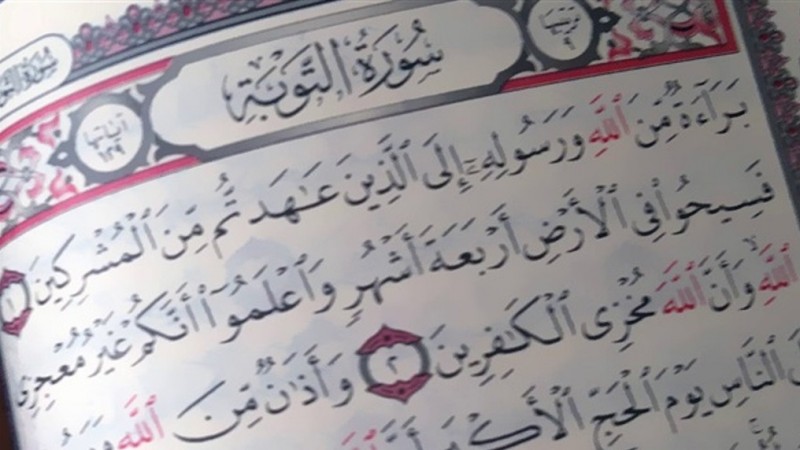 سُورَةُ التَّوْبَةِ
ترتيبها ٩
آياتها ١٢٩
بَرَآءَةٌ مِّنَ ٱللَّهِ وَرَسُولِهِۦٓ إِلَى ٱلَّذِينَ عَٰهَدتُّم مِّنَ ٱلْمُشْرِكِينَ ١
فَسِيحُوا۟ فِى ٱلْأَرْضِ أَرْبَعَةَ أَشْهُرٍ وَٱعْلَمُوٓا۟ أَنَّكُمْ غَيْرُ مُعْجِزِى
ٱللَّهِ ۙ وَأَنَّ ٱللَّهَ مُخْزِى ٱلْكَٰفِرِينَ ٢ وَأَذَٰنٌ مِّنَ ٱللَّهِ
ٱلنَّاسِ يَوْمَ ٱلْحَجِّ ٱلْأَكْبَرِ أَنَّ ٱللَّهَ